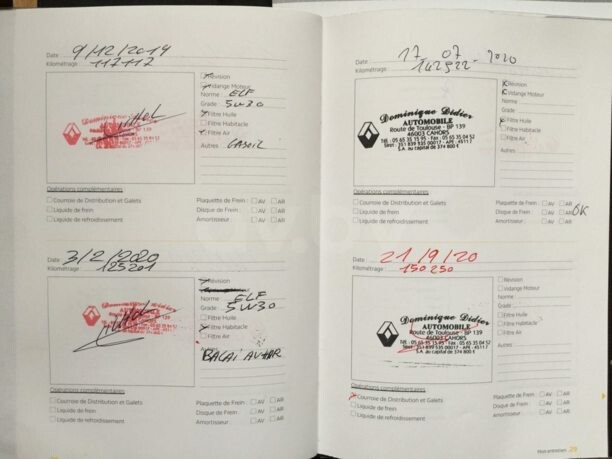 Date : 9/12/2019
Kilométrage : 117117
Révision
Vidange Moteur
Norme : ELF
Grade : 5W30
Filtre Huile
Filtre Habitacle
Filtre Air
Autres : GASOIL
Dominique Didier
Opérations complémentaires
Courroie de Distribution et Galets
Liquide de frein
Liquide de refroidissement
Plaquette de Frein : AV AR
Disque de Frein : AV AR
Amortisseur : AV AR
Date : 3/2/2020
Kilométrage : 125201
Révision
Norme : ELF
Grade : 5W30
Filtre Huile
Filtre Habitacle
Filtre Air
Autres
Opérations complémentaires
Courroie de Distribution et Galets
Liquide de frein
Liquide de refroidissement
Plaquette de Frein : AV AR
Disque de Frein : AV AR
Amortisseur : AV AR
Date : 17 07 2020
Kilométrage : 142922
Dominique Didier
AUTOMOBILE
Route de Toulouse - BP 139
46003 CAHORS
Tél : 05 65 35 15 95 - Fax : 05 65 35 04 52
Siret : 351 839 535 00017 - APE : 4511 Z
S.A. au capital de 374 800 €
Révision
Vidange Moteur
Norme
Grade
Filtre Huile
Filtre Habitacle
Filtre Air
Autres
Opérations complémentaires
Courroie de Distribution et Galets
Liquide de frein
Liquide de refroidissement
Plaquette de Frein : AV AR
Disque de Frein : AV AR OK
Amortisseur : AV AR
Date : 21/9/20
Kilométrage : 150250
Dominique Didier
AUTOMOBILE
Route de Toulouse - BP 139
46003 CAHORS
Tél : 05 65 35 15 95 - Fax : 05 65 35 04 52
Siret : 351 839 535 00017 - APE : 4511 Z
S.A. au capital de 374 800 €
Révision
Vidange Moteur
Norme
Grade
Filtre Huile
Filtre Habitacle
Filtre Air
Autres
Opérations complémentaires
Courroie de Distribution et Galets
Liquide de frein
Liquide de refroidissement
Plaquette de Frein : AV AR
Disque de Frein : AV AR
Amortisseur : AV AR
Mon entretien 29